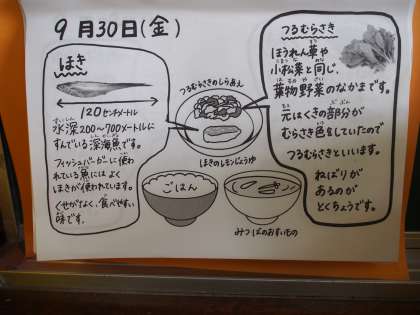 9月30日(金)
ほき
120センチメートル
水深200~700メートルに
すんでいる深海魚です。
フィッシュバーガーに使わ
れている魚にはよく
ほきが使われています。
くせがなく、食べやすい
味です。
つるむらさきのしらあえ
ほきのレモンじょうゆ
ごはん
みつばのおすいもの
つるむらさき
ほうれん草や
小松菜と同じ、
葉物野菜のなかまです。
元はくきの部分が
むらさき色をしていたので
つるむらさきといいます。
ねばりが
あるのが
とくちょうです。